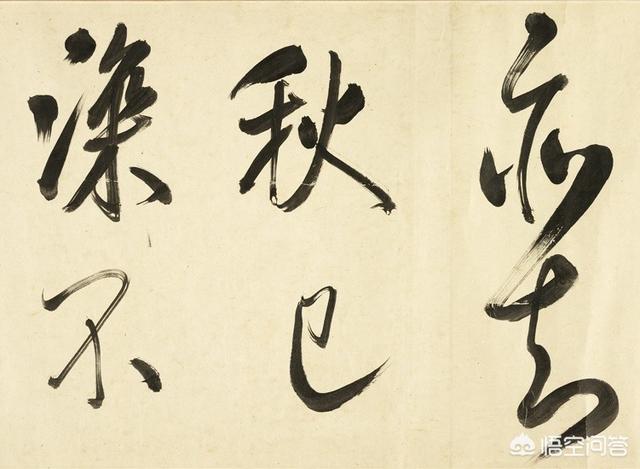 亦知
秋已
深不
悟空问答